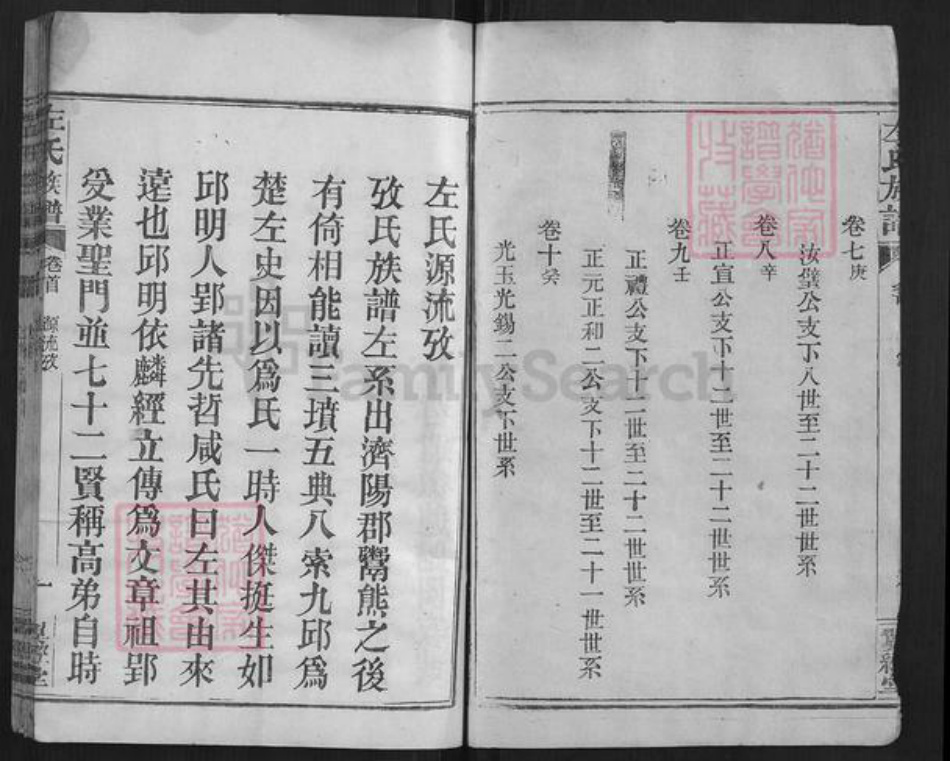 左氏族譜
卷七庚
汝璧公支下八世至二十二世世系
卷八辛
正宜公支下十二世至二十二世世系
卷九壬
正禮公支下十二世至二十二世世系
正元正和二公支下十二世至二十一世世系
卷十癸
光玉光錫二公支下世系
左氏源流攷
攷氏族譜左系出濟陽郡鬻熊之後
有倚相能讀三墳五典八索九邱爲
楚左史因以爲氏一時人傑挺生如
邱明人郢諸先哲咸氏曰左其由來
遠也邱明依麟經立傳爲文章祖郢
受業聖門並七十二賢稱高弟自時
左氏族譜
卷首
源流攷
一
FamilySearch